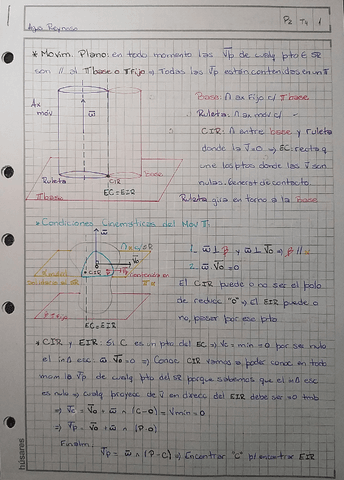 Agus Reynoso
P2 T4 1
* Movim. Plano: en todo momento las V̄p de cualq pto ∈ SR
son // al π base o π fijo ⇒ Todas las V̄p están contenidas en un π
Base: ∩ ax Fijo c/ π base
Ruleta: ∩ ax mov c/
CIR: ∩ entre base y ruleta
donde la v̄=0 ⇒ EC: recta q
une los ptos donde las v̄ son
nulas. Generat de contacto.
Ruleta gira en torno a la base
Ax
móv
ω̄
CIR
Ruleta
base
EC=EIR
π base
* Condiciones Cinemáticas del Mov π:
1. ω̄ ⊥ β y ω̄ ⊥ V̄o ⇒ β // α
2. ω̄ · V̄o = 0
El CIR puede o no ser el polo
de reducc "O" ⇒ El EIR puede o
no, pasar por ese pto
ω̄
V̄o
CIR
EC=EIR
* CIR y EIR: Si C es un pto del EC ⇒ Vc = min = 0 por ser nulo
el inΔ esc: ω̄ · V̄o = 0 ⇒ Conoc CIR vamos a poder conoc en todo
mom la V̄p de cualq pto del SR porque sabemos que el inΔ esc
es nulo ⇒ cualq proyecc de v̄ en direcc del EIR debe ser = 0 tmb
⇒ V̄c = V̄o + ω̄ ∧ (C-O) = Vmin = 0
⇒ V̄p = V̄o + ω̄ ∧ (P-O)
Finalm:
V̄p = ω̄ ∧ (P-C) ⇒ Encontrar "C" pl encontrar EIR
húsares